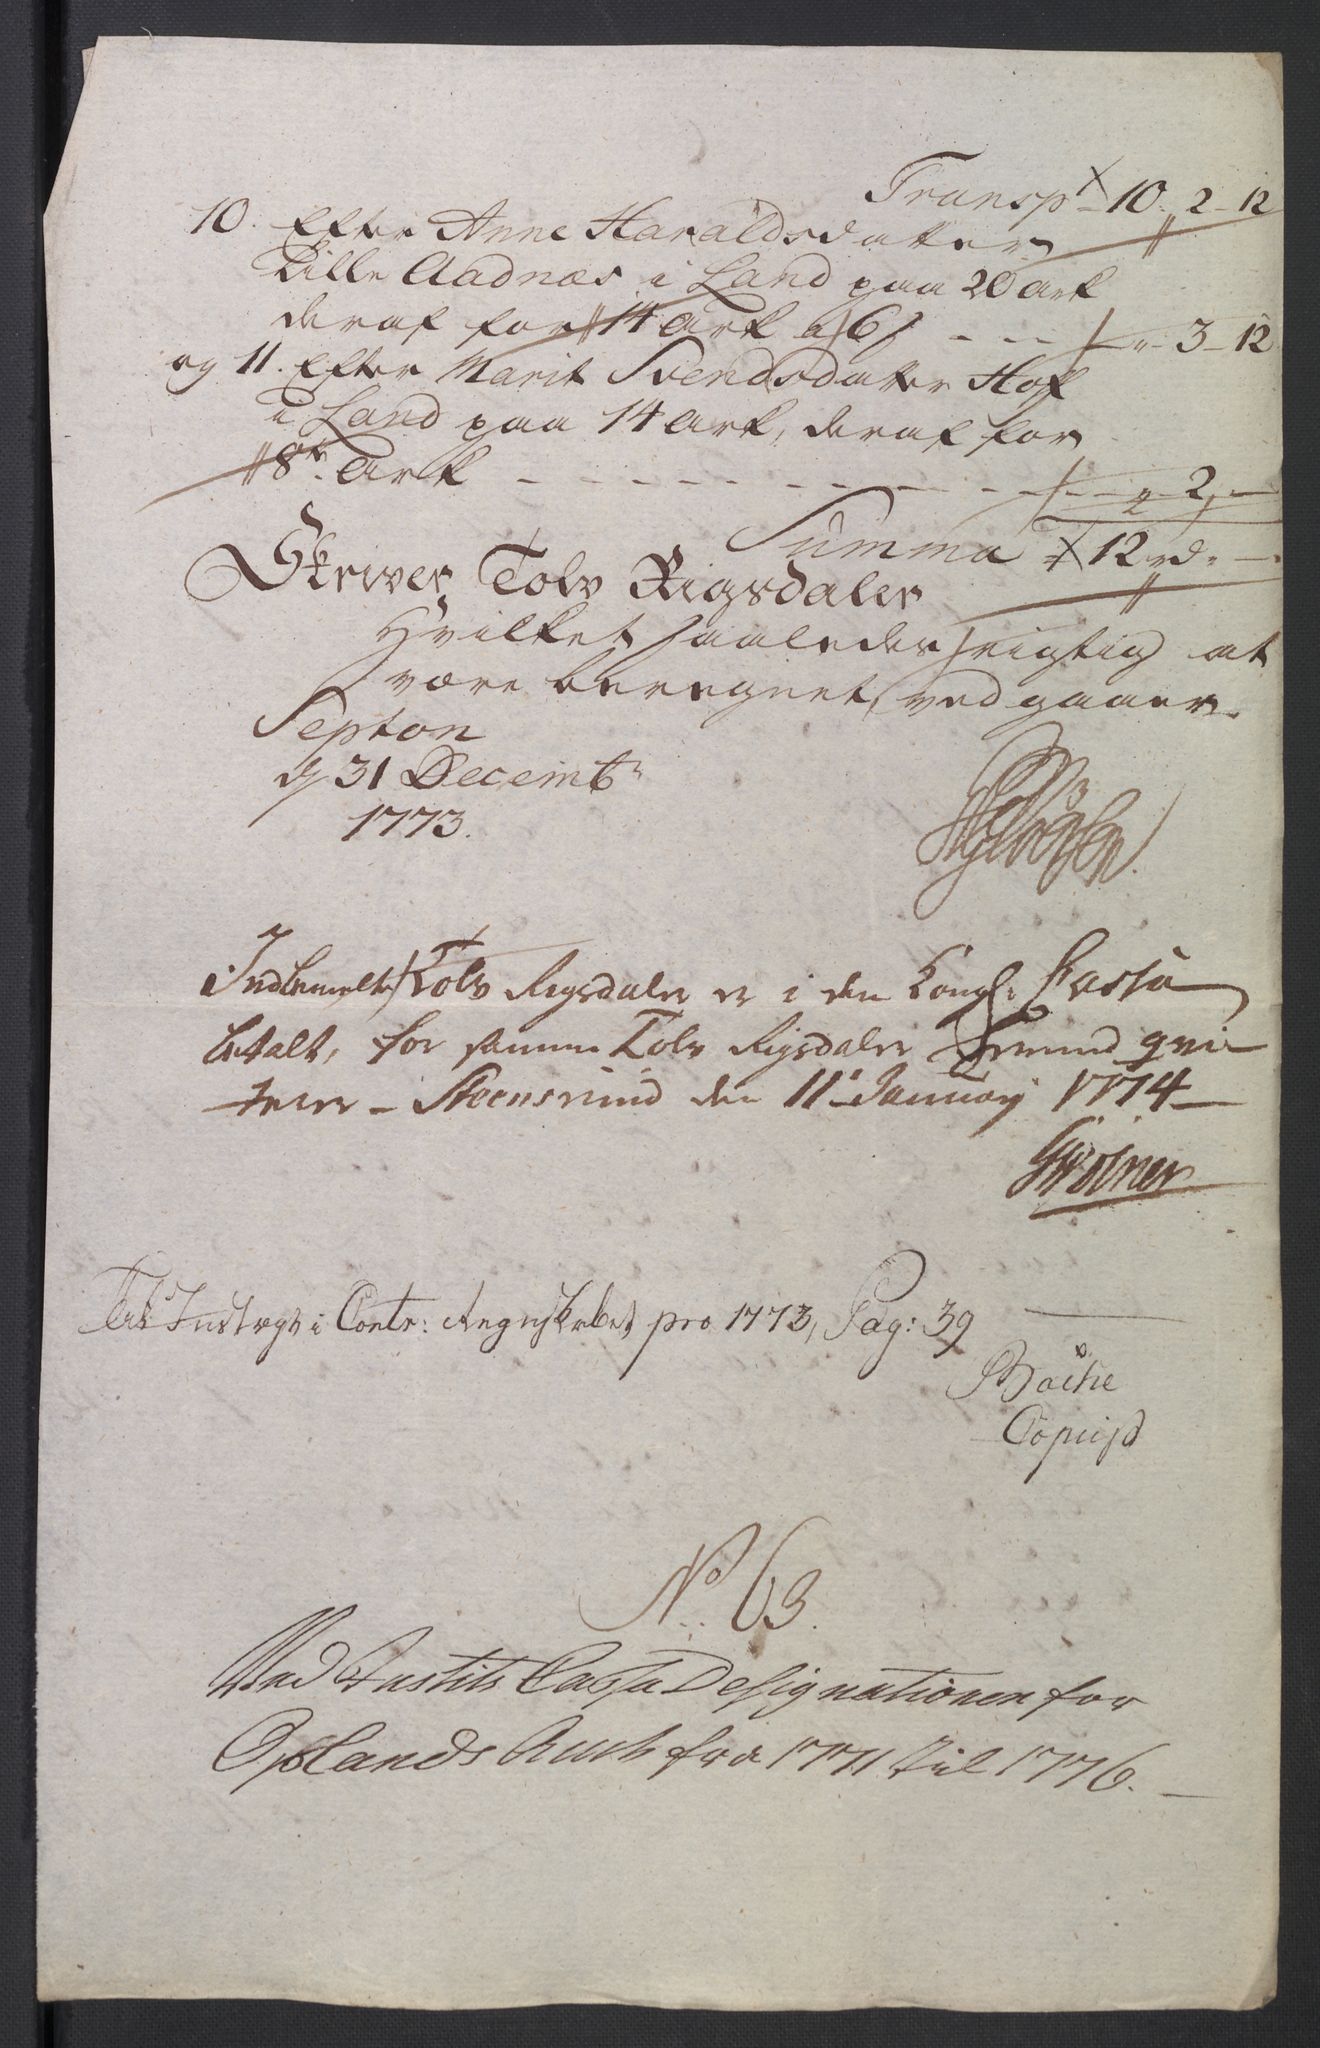 Transpt 10 - 2 - 12
10. Efter Anne Haraldsdatter
Lille Aadnæs i Land paa 20 Ark
deraf for 14 Ark a 6 s - - - „ - 3 - 12
og 11. Efter Marit Svendsdatter Hof
i Land paa 14 Ark, deraf for
8te Ark - - - - - - „ - 2 „ -
Summa 12 rd „ -
Skriver Tolv Rigsdaler
Hvilket saaledes rigtig at
være beregnet, vedgaaer.
Septon
d 31 Decembr
1773.
Indbemelte Tolv Rigsdaler er i den Kongl: Cassa
betalt, for samme Tolv Rigsdaler qvi-
terer - Steensrud den 11te January 1774 -
i Contr: Regnskabet pro 1773, Pag: 39
Bache
Copiist
No. 63.
Ved Justits Cassa Designationen for
Oplands Amt fra 1771 til 1776.